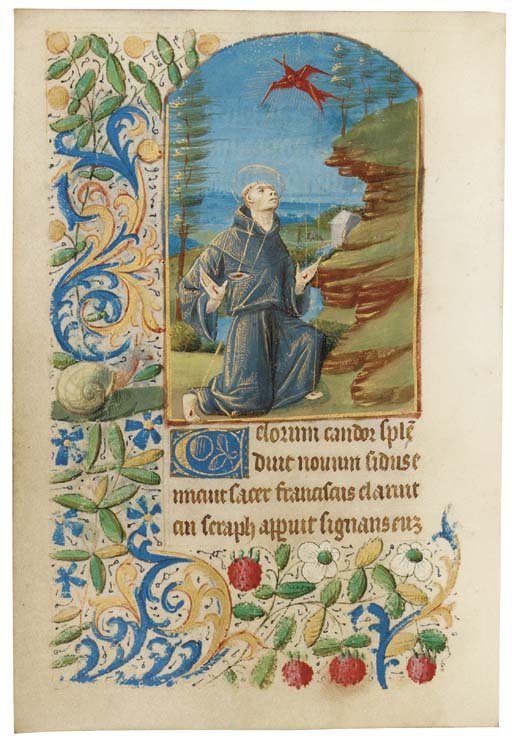 Celorum candor splē
duit nouum sidus e
micuit sacer franciscus claruit
cui seraph appuit signans euz